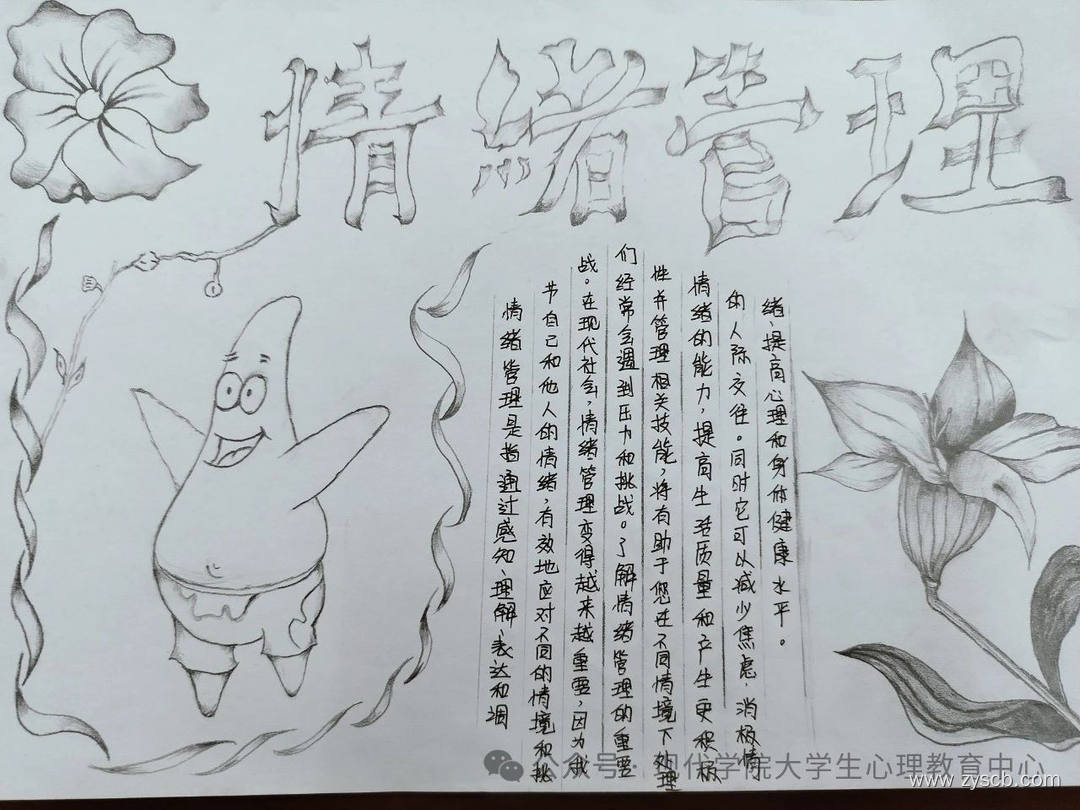 情緒管理
情绪管理是指通过感知、理解、表达和调
节自己和他人的情绪,有效地应对不同的情境和挑
战。在现代社会,情绪管理变得越来越重要,因为我
们经常会遇到压力和挑战。了解情绪管理的重要
性并管理相关技能,将有助于您在不同情境下处理
情绪的能力,提高生活质量和产生更积极
的人际交往。同时它可以减少焦虑、消极情
绪、提高心理和身体健康水平。
公众号 · 现代学院大学生心理教育中心
www.zyscb.com